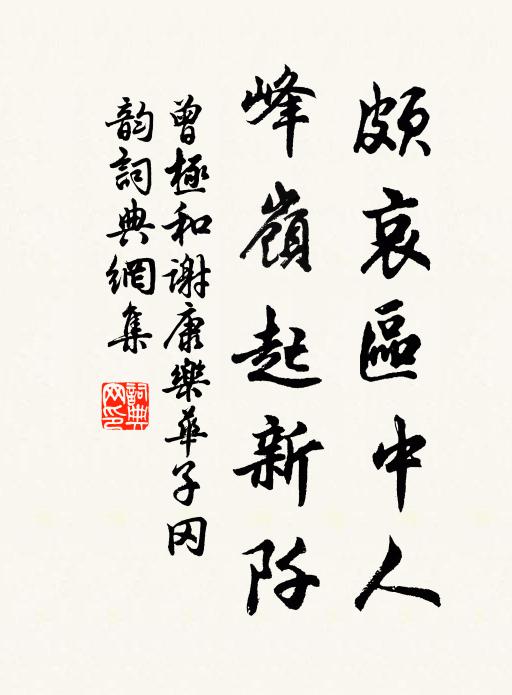 頗哀區中人
峰嶺起新阡
曾極和謝康樂華子岡
韵詞典網集
詞典網印